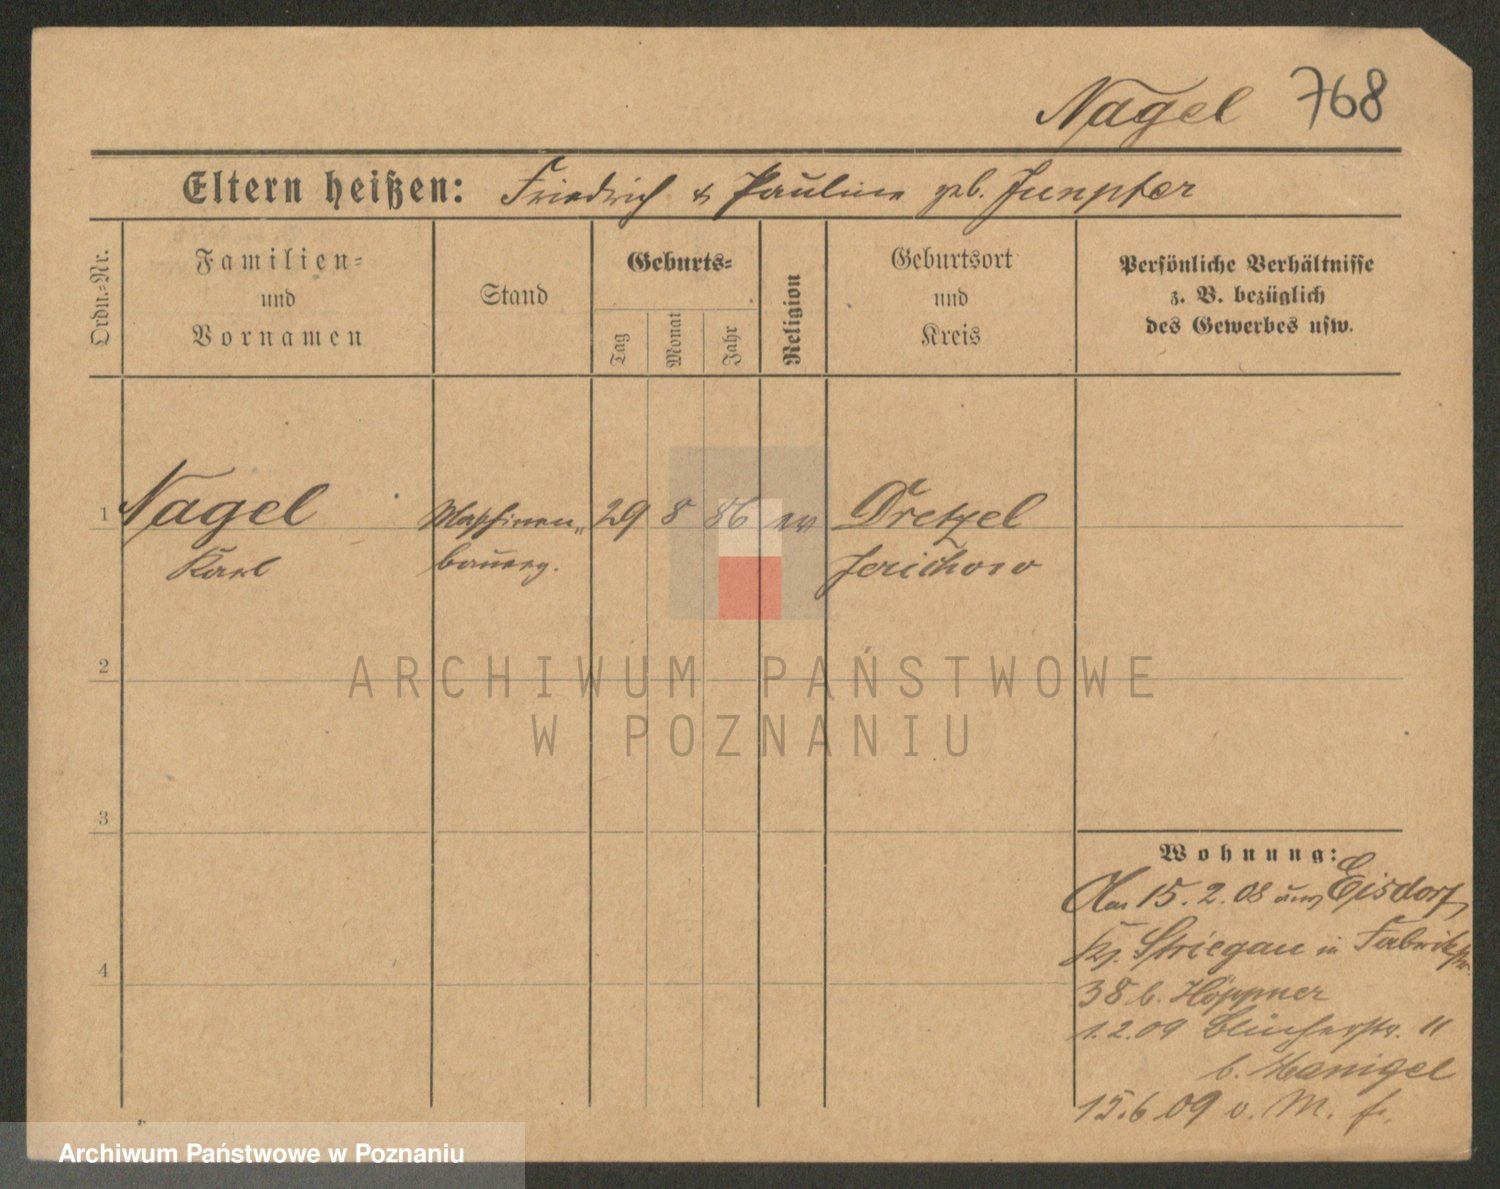 Nagel 768
Eltern heißen: Friedrich & Pauline geb. Junpfer
Ordn.-Nr.
Familien-
und
Vornamen
Stand
Geburts-
Tag
Monat
Jahr
Religion
Geburtsort
und
Kreis
Persönliche Verhältnisse
z. B. bezüglich
des Gewerbes usw.
1 Nagel Maschinen- 29 8 86 ev Dretzel
Karl bauerg. Jerichow
2
3
4
Wohnung:
Am 15.2.08 aus Eisdorf,
Kr. Striegau in Fabrikstr.
38 b. Höppner
1.2.09 Blücherstr. 11
b. Hanigel
15.6.09 v. M. f.
ARCHIWUM PAŃSTWOWE
W POZNANIU
Archiwum Państwowe w Poznaniu